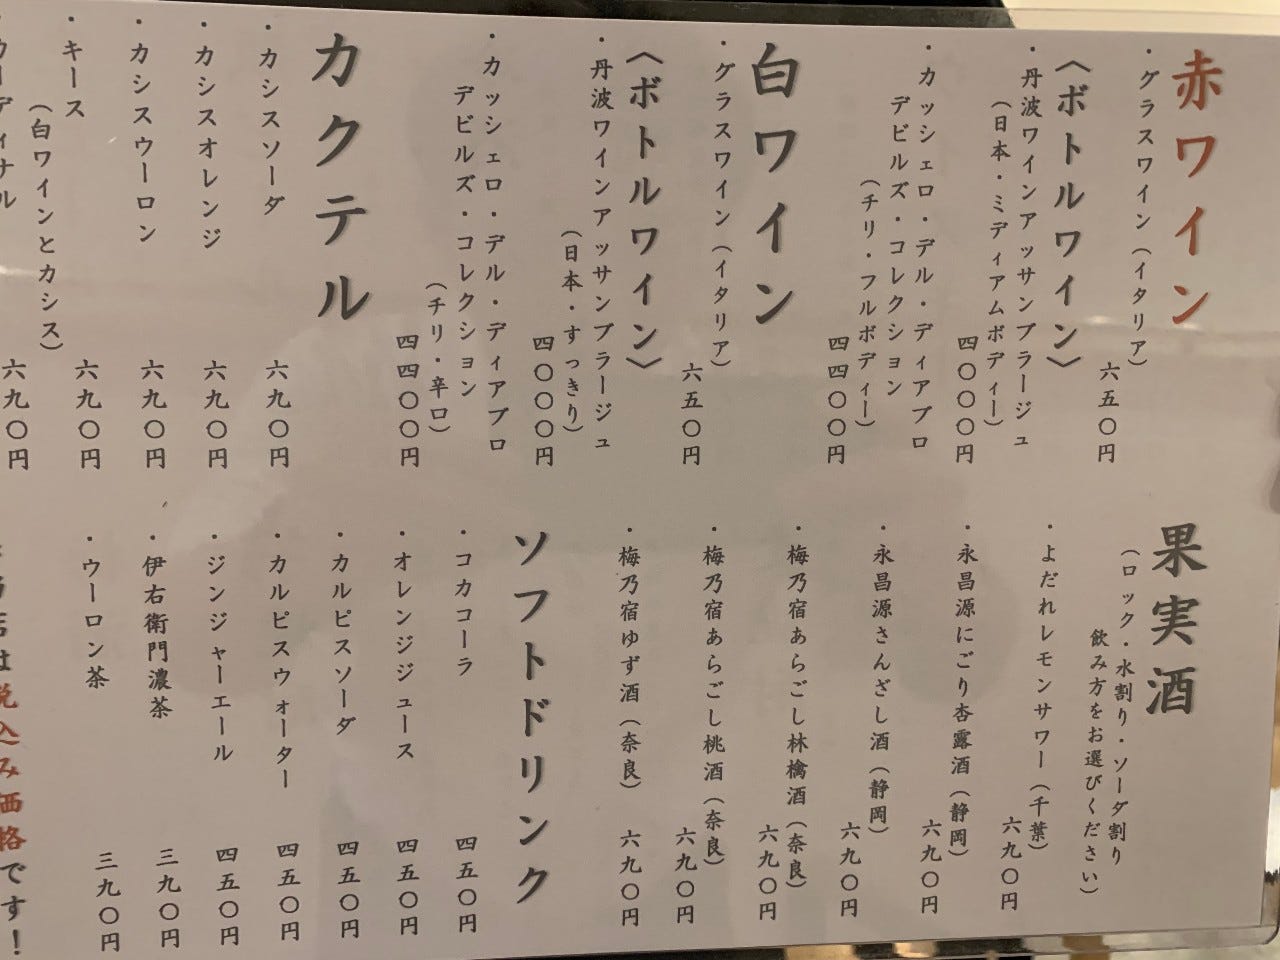 赤ワイン
・グラスワイン(イタリア)
六五〇円
〈ボトルワイン〉
・丹波ワインアッサンブラージュ
(日本・ミディアムボディー)
四〇〇〇円
・カッシェロ・デル・ディアブロ
デビルズ・コレクション
(チリ・フルボディー)
四四〇〇円
白ワイン
・グラスワイン(イタリア)
六五〇円
〈ボトルワイン〉
・丹波ワインアッサンブラージュ
(日本・すっきり)
四〇〇〇円
・カッシェロ・デル・ディアブロ
デビルズ・コレクション
(チリ・辛口)
四四〇〇円
カクテル
・カシスソーダ
六九〇円
・カシスオレンジ
六九〇円
・カシスウーロン
六九〇円
・キース
(白ワインとカシス)
六九〇円
ーディナル
六九〇円
果実酒
(ロック・水割り・ソーダ割り
飲み方をお選びください)
・よだれレモンサワー(千葉)
六九〇円
・永昌源にごり杏露酒(静岡)
六九〇円
・永昌源さんざし酒(静岡)
六九〇円
・梅乃宿あらごし林檎酒(奈良)
六九〇円
・梅乃宿あらごし桃酒(奈良)
六九〇円
・梅乃宿ゆず酒(奈良)
六九〇円
ソフトドリンク
・コカコーラ
四五〇円
・オレンジジュース
四五〇円
・カルピスソーダ
四五〇円
・カルピスウォーター
四五〇円
・ジンジャーエール
四五〇円
・伊右衛門濃茶
三九〇円
・ウーロン茶
三九〇円
店は税込み価格です!